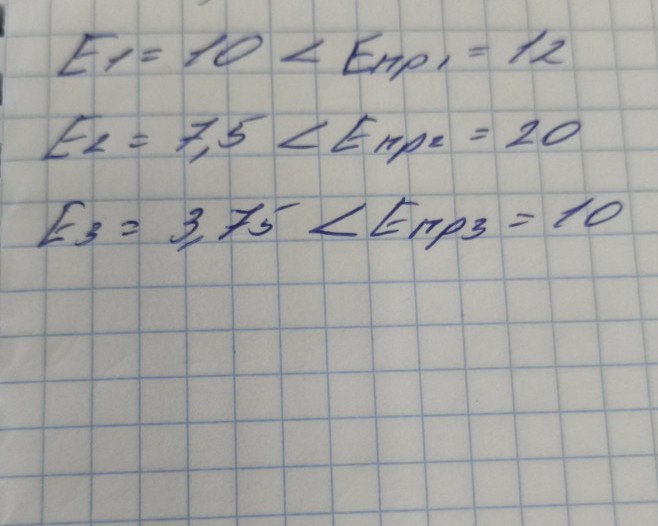 E1 = 10 < Eпр1 = 12
E2 = 7,5 < Eпр2 = 20
E3 = 3,75 < Eпр3 = 10